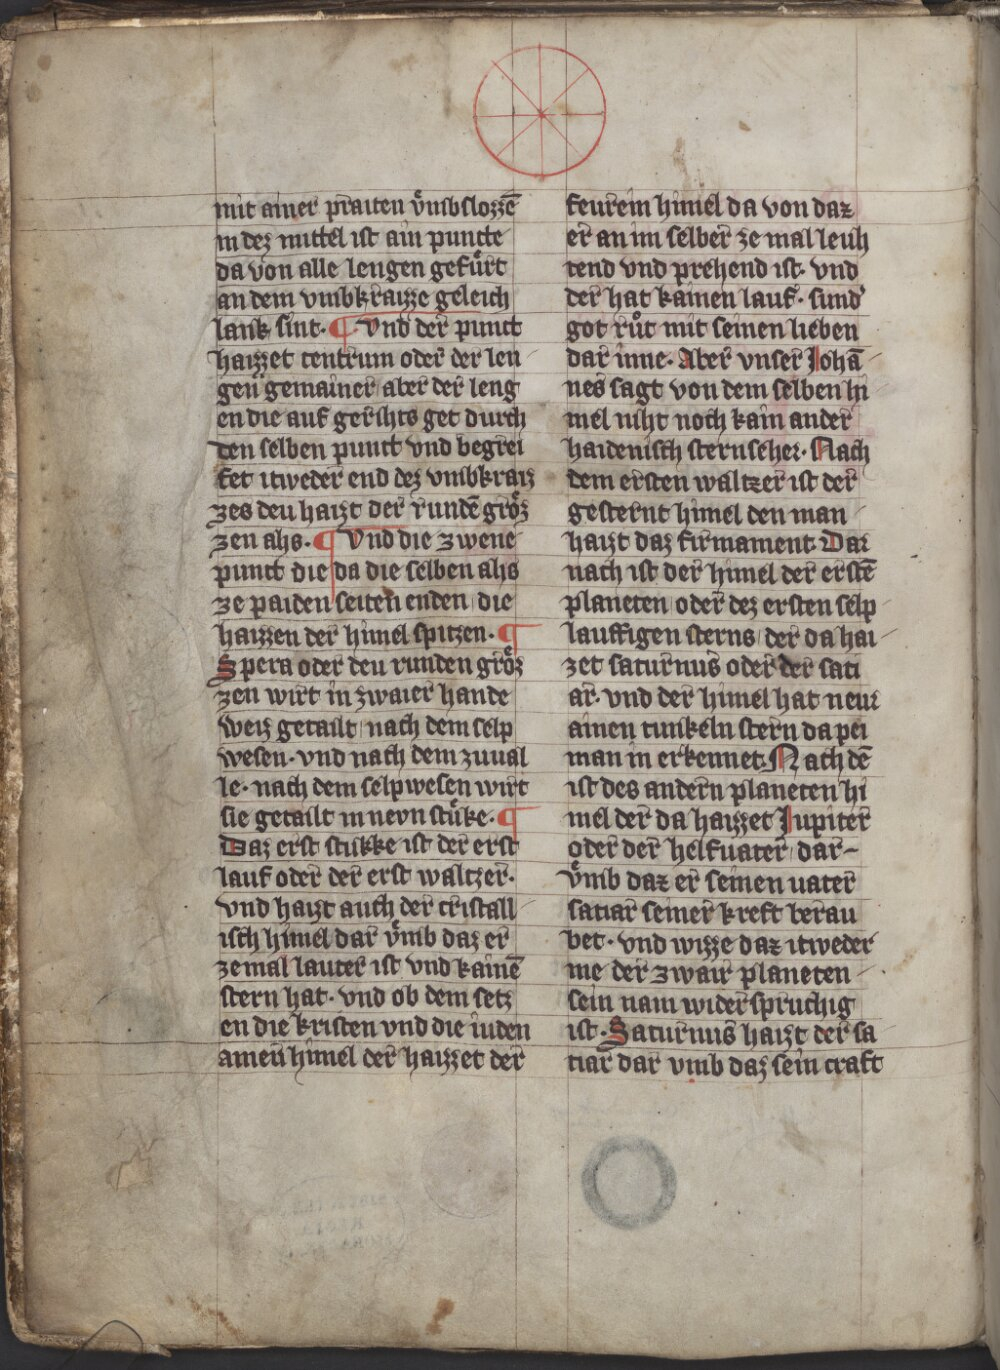 mit ainer praiten vͤmbslozzē
in dez mittel ist ain puncte
da von alle lengen gefuͤrt
an dem vmbkraizze geleich
lank sint · ¶ · vnd der punct
haizzet centrum oder der len
gen gemainer aber der leng
en die auf gerihts get durch
den selben punct vnd begrei
fet itweder end dez vmbkraiz
zes deu haizt der rundē groͤz
zen ahs · ¶ Vnd die zwene
punct die da die selben ahs
ze paiden seiten enden die
haizzen der himel spitzen · ¶
Spera oder deu runden groͤz
zen wirt in zwaier hande
weiz getailt nach dem selp
wesen · vnd nach dem zuual
le · nach dem selpwesen wirt
sie getailt in nevn stuͤke · ¶
Daz erst stukke ist der erst
lauf oder der erst waltzer ·
vnd haizt auch der cristall
isch himel dar vͤmb daz er
ze mal lauter ist vnd kainē
stern hat · vnd ob dem setz
en die kristen vnd die iuden
ainen himel der haizzet der
feurein himel da von daz
er an im selber ze mal leuh
tend vnd prehend ist · vnd
der hat kainen lauf · sund
got ruͦt mit seinen lieben
dar inne · Aber vnser Johā
nes sagt von dem selben hi
mel niht noch kain ander
haidenisch sternseher · Nach
dem ersten waltzer ist der
gesternt himel den man
haizt daz firmament Dar
nach ist der himel der erstē
planeten oder dez ersten selp
lauffigen sterns der da hai
zet saturnus oder der sati
ar · vnd der himel hat neur
ainen tunkeln stern da pei
man in erkennet · Nach dē
ist des andern planeten hi
mel der da haizzet Jupiter
oder der helfuater dar
vͤmb daz er seinen uater
satiar seiner kreft berau
bet · vnd wizze daz itweder
me der zwair planeten
sein nam widerspruchig
ist · Saturnus haizt der sa
tiar dar vmb daz sein craft